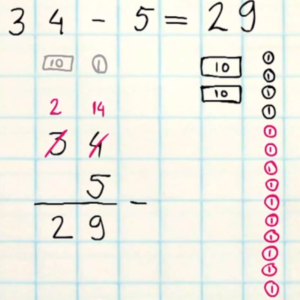 34 - 5 = 29
10 1
2 14
3 4
5
-
29
10
10
1
1
1
1
1
1
1
1
1
1
1
1
1
1